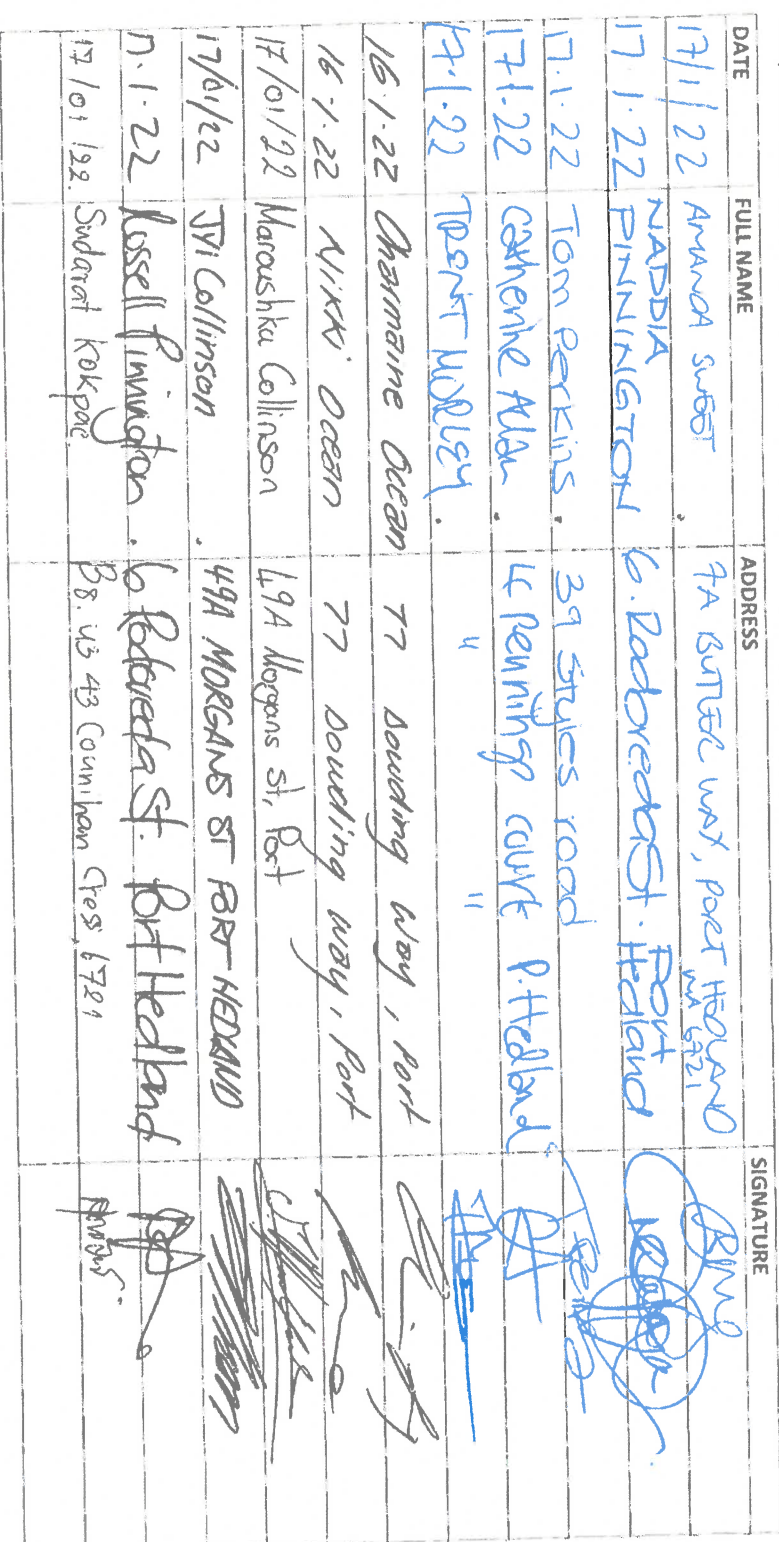 DATE FULL NAME ADDRESS SIGNATURE
17/1/22 AMANDA SWEET 7A BUTLER WAY, PORT HEDLAND
WA 6721
17 1.22 NADDIA PINNINGTON 6. RodoredaSt. Port Hedland
17.1.22 Tom Perkins. 39 Styles road
17.1.22 Catherine Allan. 4 Penning court P.Hedland
17.1.22 TRENT MORLEY. " "
16.1.22 Charmaine Ocean 77 Dowding Way, Port
16.1.22 Nikki Ocean 77 Dowding Way, Port
17/01/22 Maroushka Collinson 49A Morgans St, Port
17/01/22 Collinson. 49A MORGANS ST PORT HEDLAND
17.1.22 Russell Pinnington. 6 Rodoreda St. Port Hedland
17/01/22. Sudarat Kokpore 43 Counihan Cres, 6721